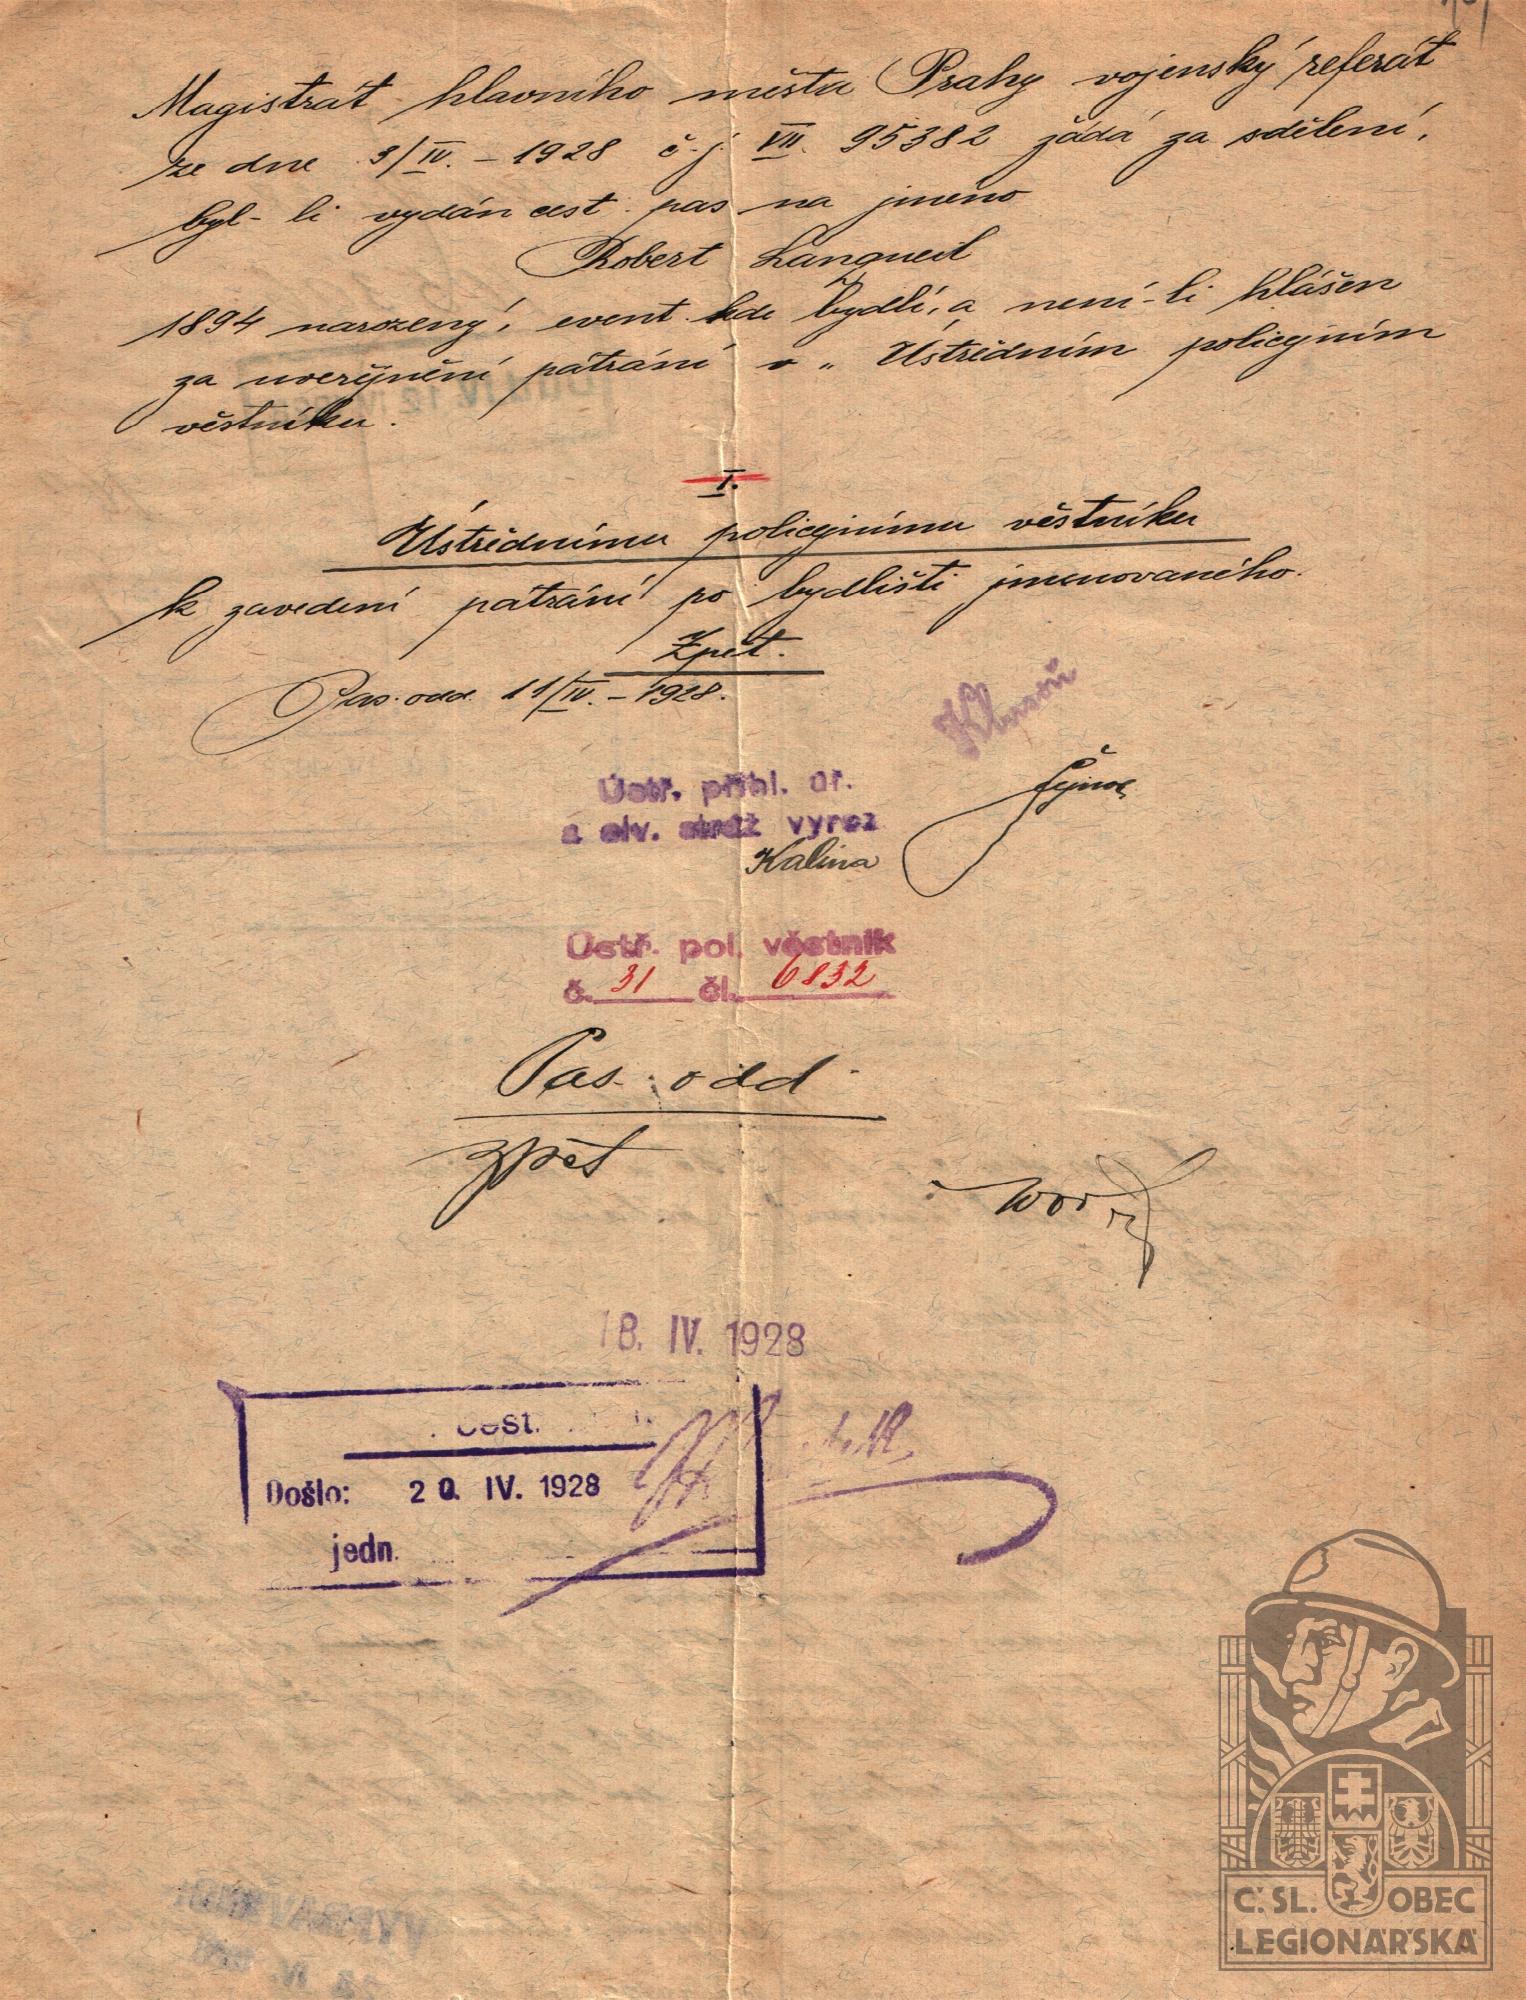 Magistrát hlavního města Prahy vojenský referát
ze dne 3/IV. – 1928 č.j. VII. 95382 žádá za sdělení,
byl-li vydán cest. pas na jméno
Robert Langueil
1894 narozený, event. kde bydlí, a není-li hlášen
za uveřejnění pátrání v „Ústředním policejním
věstníku.
I.
Ústřednímu policejnímu věstníku
k zavedení pátrání po bydlišti jmenovaného.
Zpět.
Pas. odd. 11/IV. – 1928.
Ústř. přihl. úř.
a elv. stráž vyroz
Kalina
Ústř. pol. věstník
č. 31 čl. 6832
Pas. odd.
zpět
18. IV. 1928
cest.
Došlo: 20. IV. 1928
jedn.
Č.SL. OBEC
LEGIONÁŘSKÁ